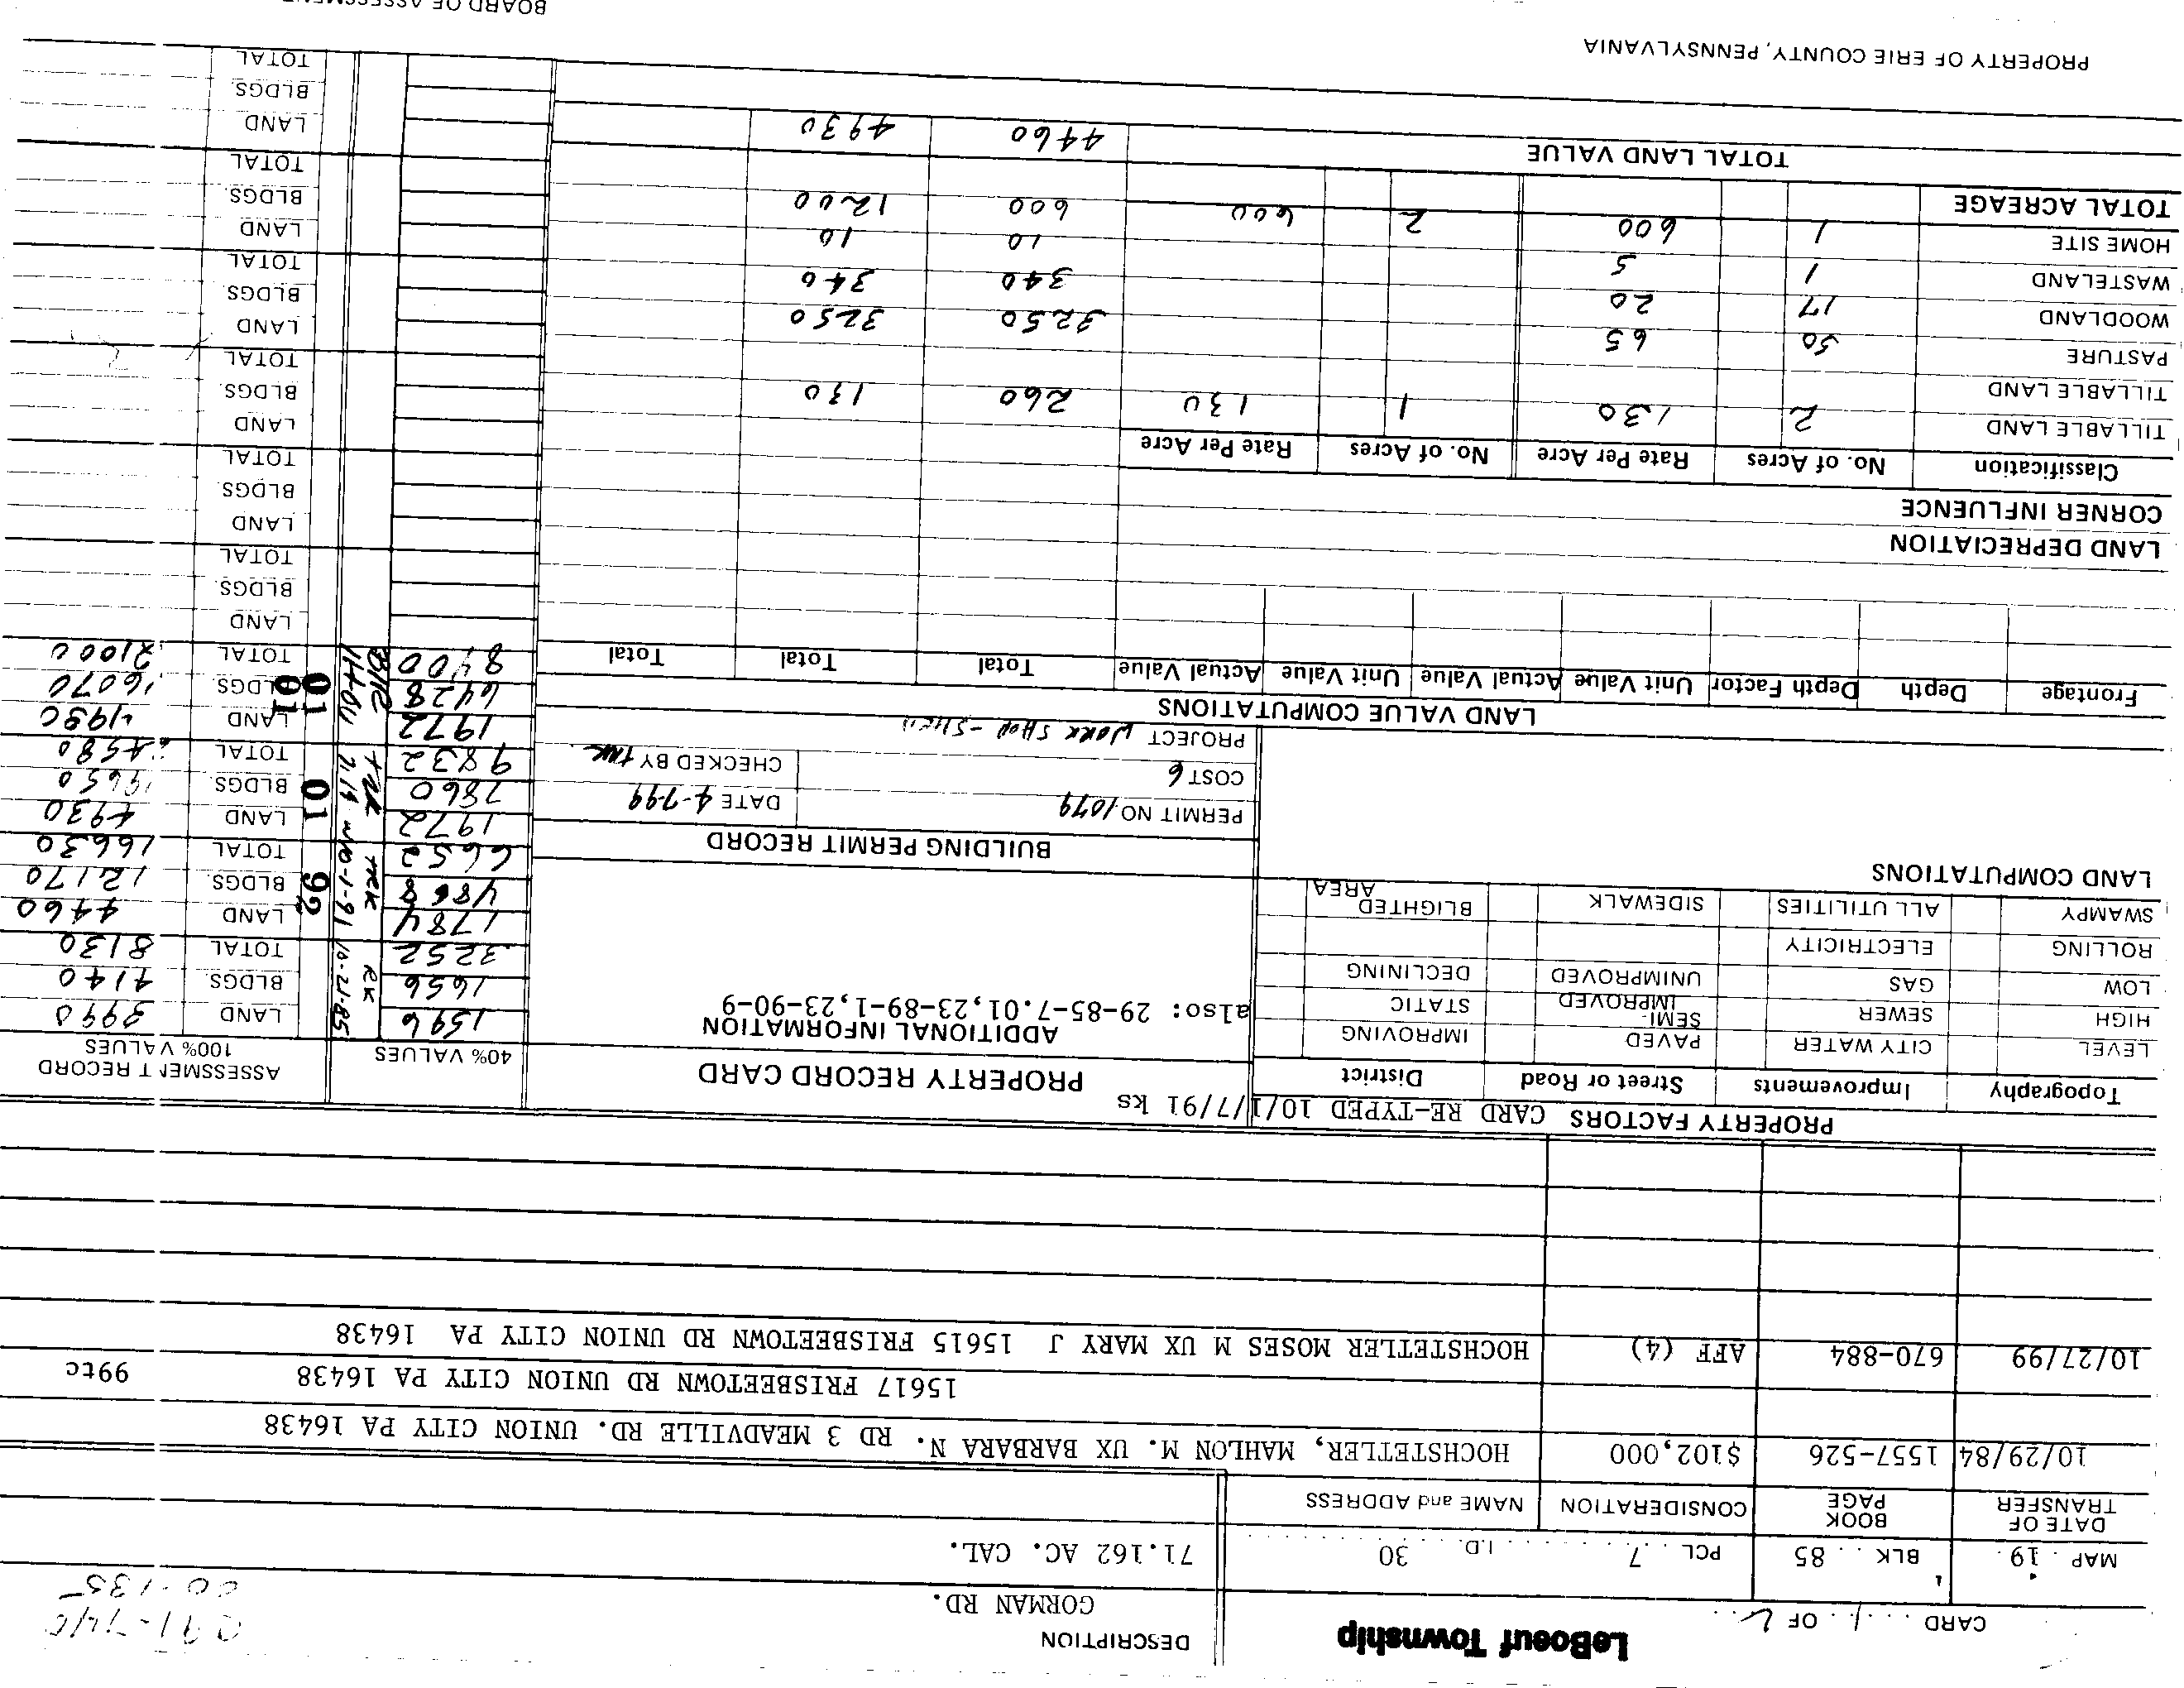 LeBoeuf Township
CARD 1 OF 2
DESCRIPTION
GORMAN RD.
71.162 AC. CAL.
00-135
MAP 19 BLK 85 PCL 7 I.D. 30
DATE OF TRANSFER BOOK PAGE CONSIDERATION NAME and ADDRESS
10/29/84 1557-526 $102,000 HOCHSTETLER, MAHLON M. UX BARBARA N. RD 3 MEADVILLE RD. UNION CITY PA 16438
15617 FRISBEETOWN RD UNION CITY PA 16438 99tc
10/27/99 670-884 AFF (4) HOCHSTETLER MOSES M UX MARY J 15615 FRISBEETOWN RD UNION CITY PA 16438
PROPERTY FACTORS CARD RE-TYPED 10/17/91 ks
Topography Improvements Street or Road District
LEVEL CITY WATER PAVED IMPROVING
HIGH SEWER SEMI-IMPROVED STATIC
LOW GAS UNIMPROVED DECLINING
ROLLING ELECTRICITY
SWAMPY ALL UTILITIES SIDEWALK BLIGHTED AREA
LAND COMPUTATIONS
PROPERTY RECORD CARD
ADDITIONAL INFORMATION
also: 29-85-7.01,23-89-1,23-90-9
BUILDING PERMIT RECORD
PERMIT NO. 1079 DATE 4-7-99
COST 6 CHECKED BY TMK
PROJECT WORK SHOP -
40% VALUES ASSESSMENT RECORD 100% VALUES
1596 RK 10-21-85 LAND 3990
1656 BLDGS. 4140
3252 TOTAL 8130
1784 TMK LAND 4460
4868 92 BLDGS. 12170
6652 TOTAL 16630
1972 LAND 4930
7860 01 BLDGS 19650
9832 TOTAL 24580
1972 LAND 4930
6428 01 BLDGS 16070
8400 01 TOTAL 21000
LAND
BLDGS
TOTAL
LAND
BLDGS
TOTAL
LAND
BLDGS.
TOTAL
LAND
BLDGS
TOTAL
LAND
BLDGS
TOTAL
LAND
BLDGS
TOTAL
LAND VALUE COMPUTATIONS
Frontage Depth Depth Factor Unit Value Actual Value Unit Value Actual Value Total Total Total
LAND DEPRECIATION
CORNER INFLUENCE
Classification No. of Acres Rate Per Acre No. of Acres Rate Per Acre
TILLABLE LAND 2 130 1 130 260 130
TILLABLE LAND
PASTURE 50 65 3250 3250
WOODLAND 17 20 340 340
WASTELAND 1 5 10 10
HOME SITE 1 600 2 600 600 1200
TOTAL ACREAGE
TOTAL LAND VALUE 4460 4930
PROPERTY OF ERIE COUNTY, PENNSYLVANIA
BOARD OF ASSESSMENT